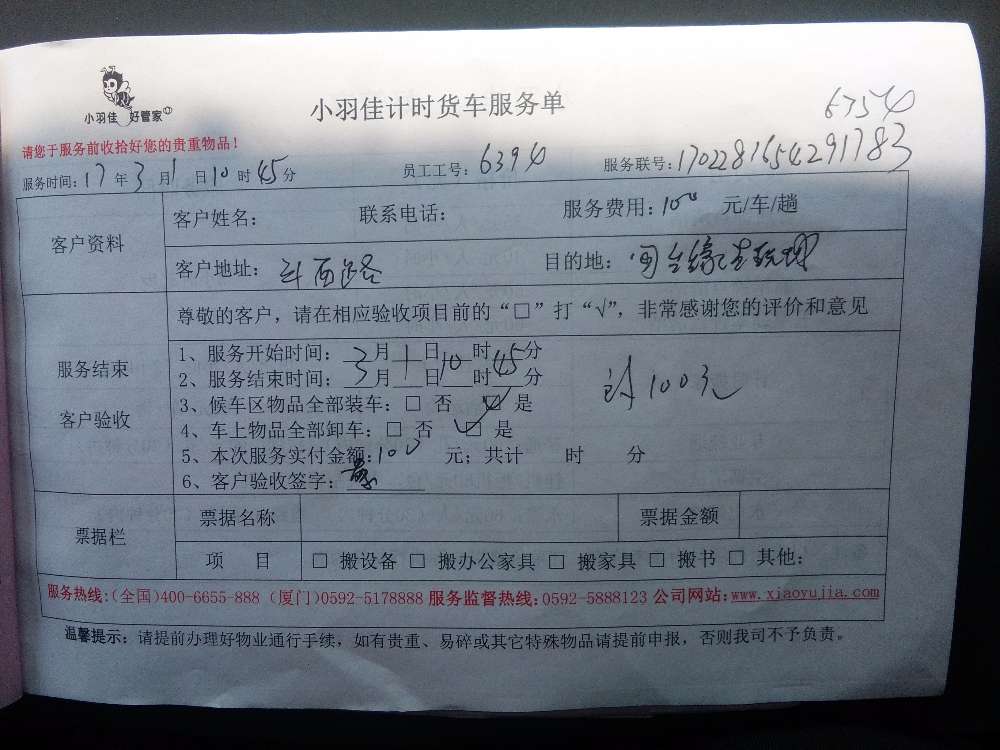 小羽佳 好管家
小羽佳计时货车服务单
6754
请您于服务前收拾好您的贵重物品！
服务时间：17年3月1日10时45分 员工工号：6394 服务联号：1702281654291783
客户资料
客户姓名： 联系电话： 服务费用：100 元/车/趟
客户地址：斗西路 目的地：闽台缘
尊敬的客户，请在相应验收项目前的“□”打“√”，非常感谢您的评价和意见
服务结束
客户验收
1、服务开始时间：3月1日10时45分
2、服务结束时间：3月 日 时 分
3、候车区物品全部装车：□ 否 ☑ 是
4、车上物品全部卸车：□ 否 ☑ 是
5、本次服务实付金额：100 元；共计 时 分
6、客户验收签字：
计100元
票据栏
票据名称 票据金额
项 目 □ 搬设备 □ 搬办公家具 □ 搬家具 □ 搬书 □ 其他：
服务热线：(全国)400-6655-888 (厦门)0592-5178888 服务监督热线：0592-5888123 公司网站：www.xiaoyujia.com
温馨提示：请提前办理好物业通行手续，如有贵重、易碎或其它特殊物品请提前申报，否则我司不予负责。